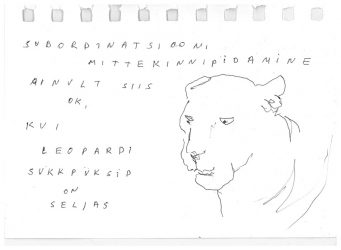 SUBORDINATSIOONI
MITTEKINNIPIDAMINE
AINULT SIIS
OK,
KUI
LEOPARDI
SUKKPÜKSID
ON
SELJAS